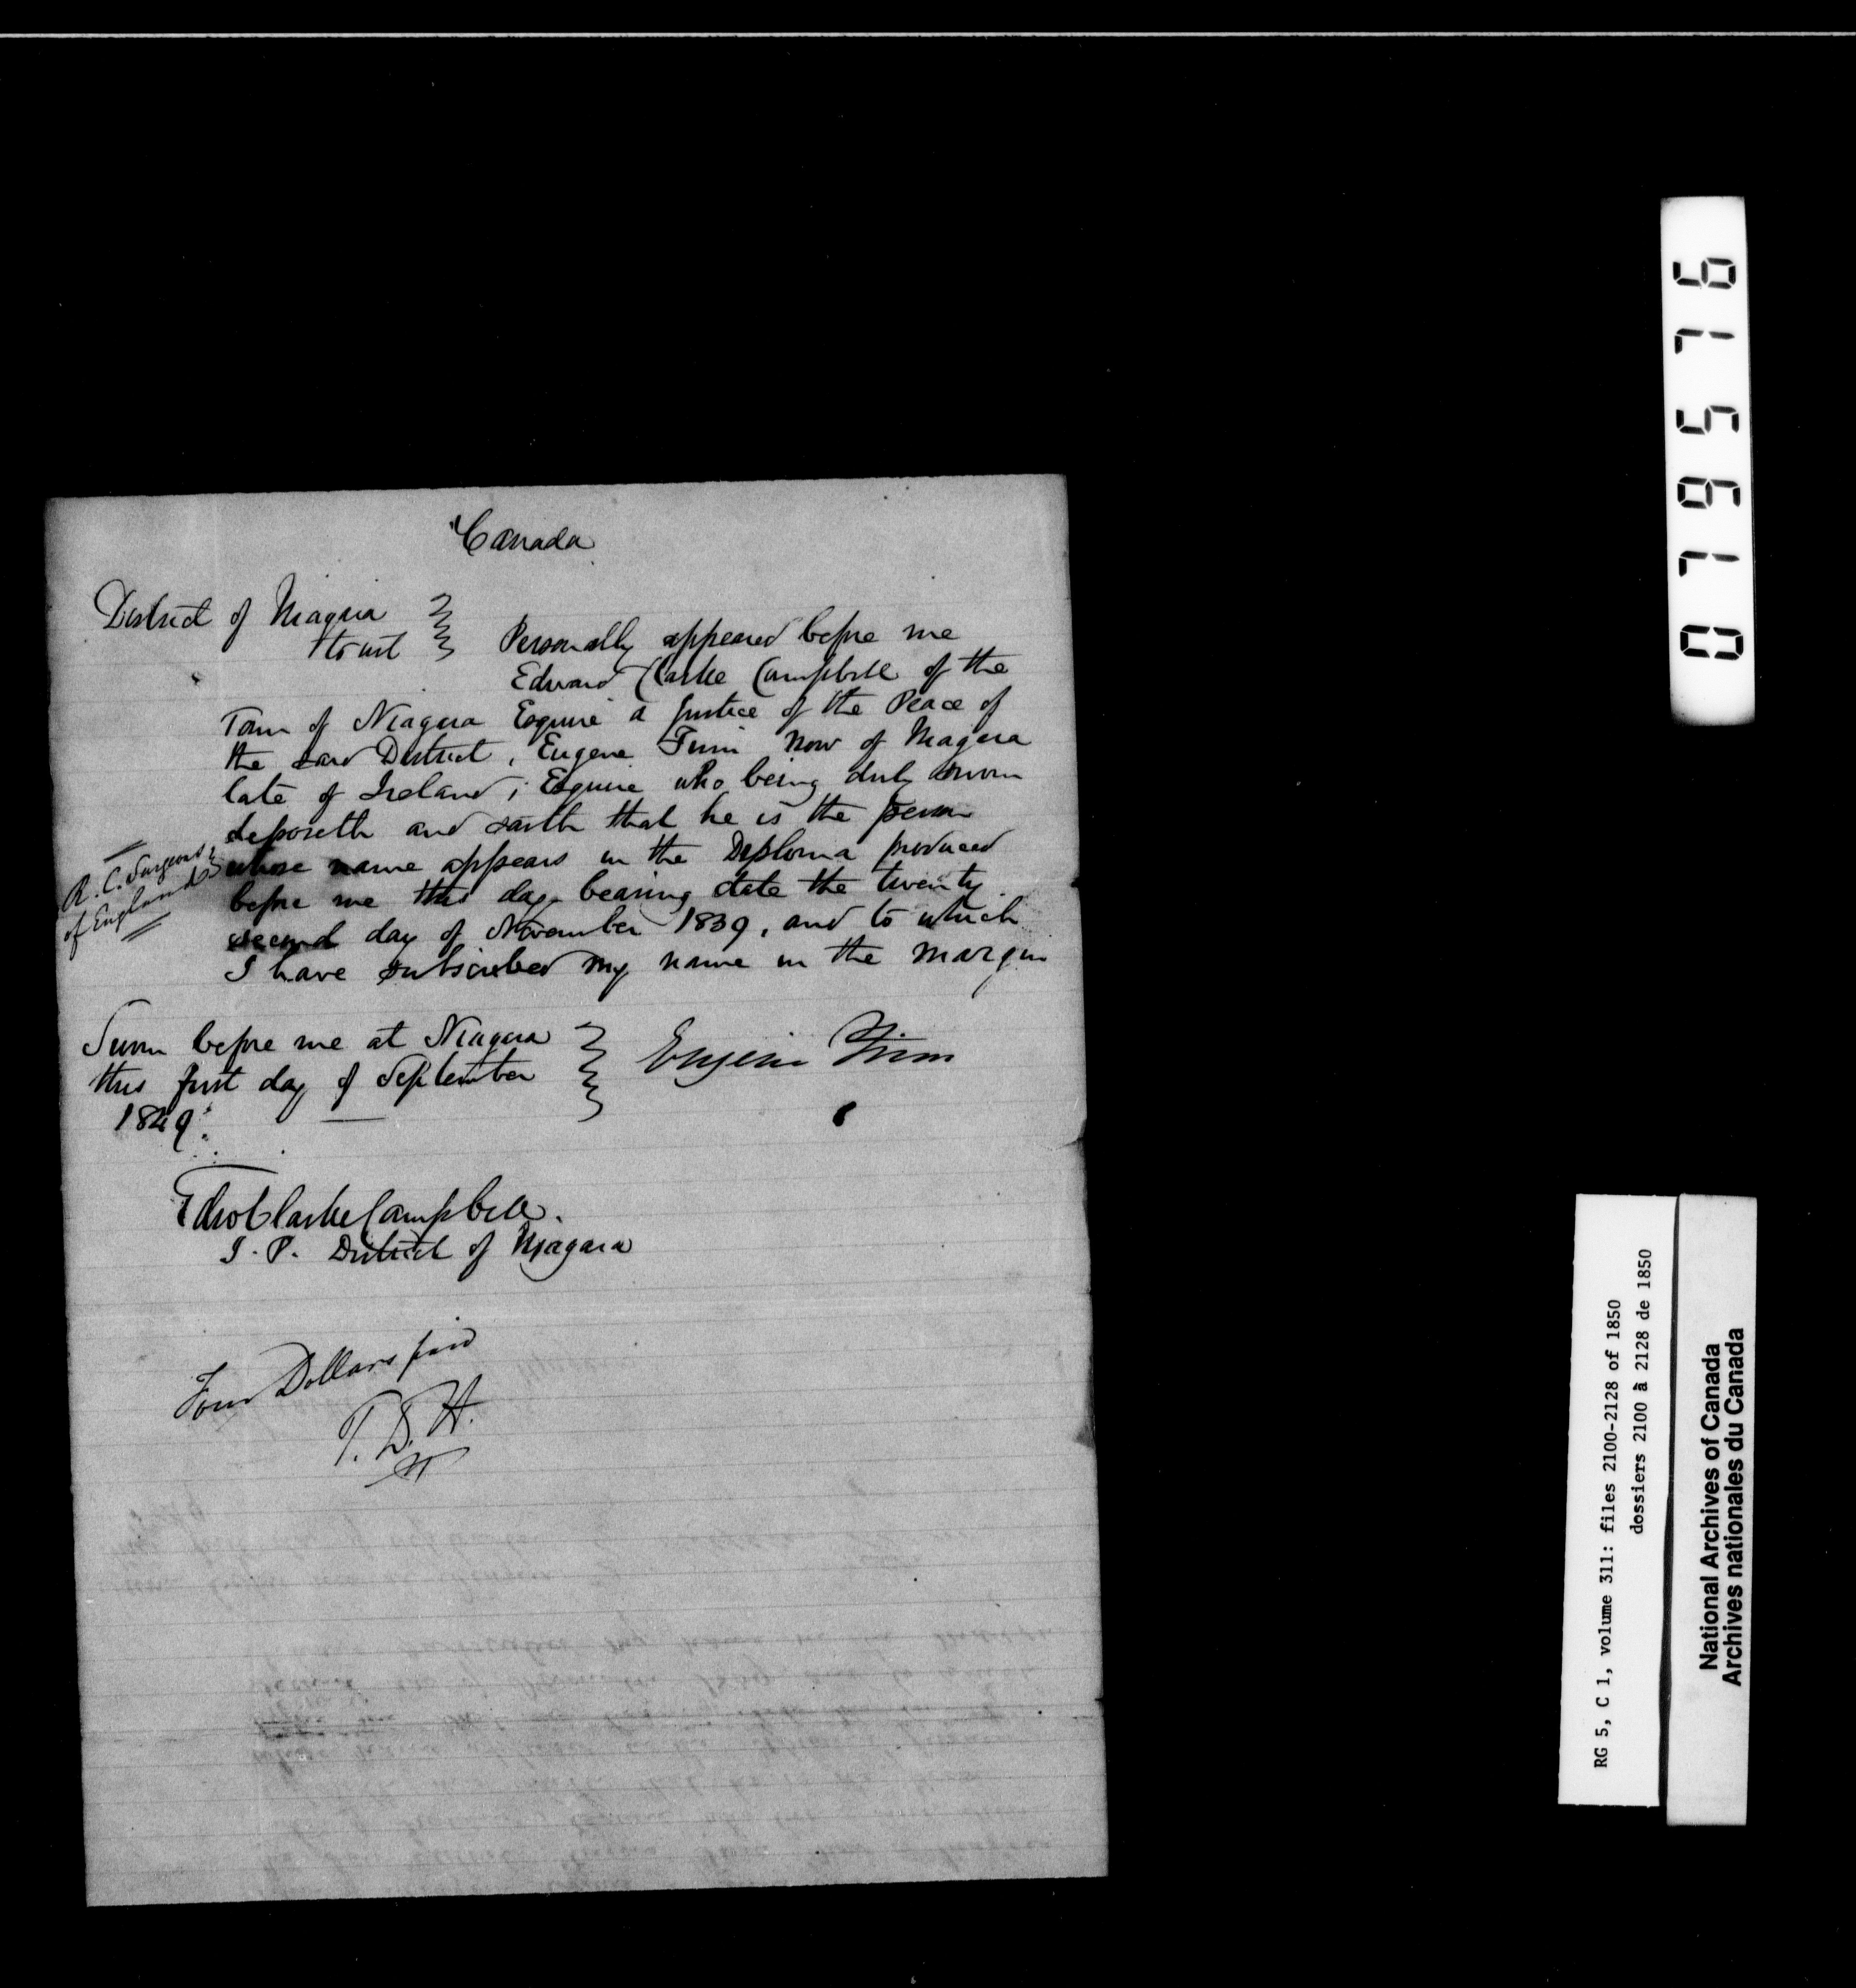 Canada
District of Niagara
to wit
Personally appeared before me
Edward Clarke Campbell of the
Town of Niagara Esquire a Justice of the Peace of
the said District, Eugene Finn now of Niagara
late of Ireland; Esquire who being duly sworn
deposeth and saith that he is the person
whose name appears in the Diploma produced
before me this day bearing date the twenty
second day of November 1839, and to which
I have subscribed my name in the margin
R. C. Surgeons
of England
Sworn before me at Niagara
this first day of September
1849.
Eugene Finn
Edwd Clarke Campbell.
J. P. District of Niagara
Four Dollars paid
T. D. H.
079576
RG 5, C 1, volume 311: files 2100-2128 of 1850
dossiers 2100 à 2128 de 1850
National Archives of Canada
Archives nationales du Canada